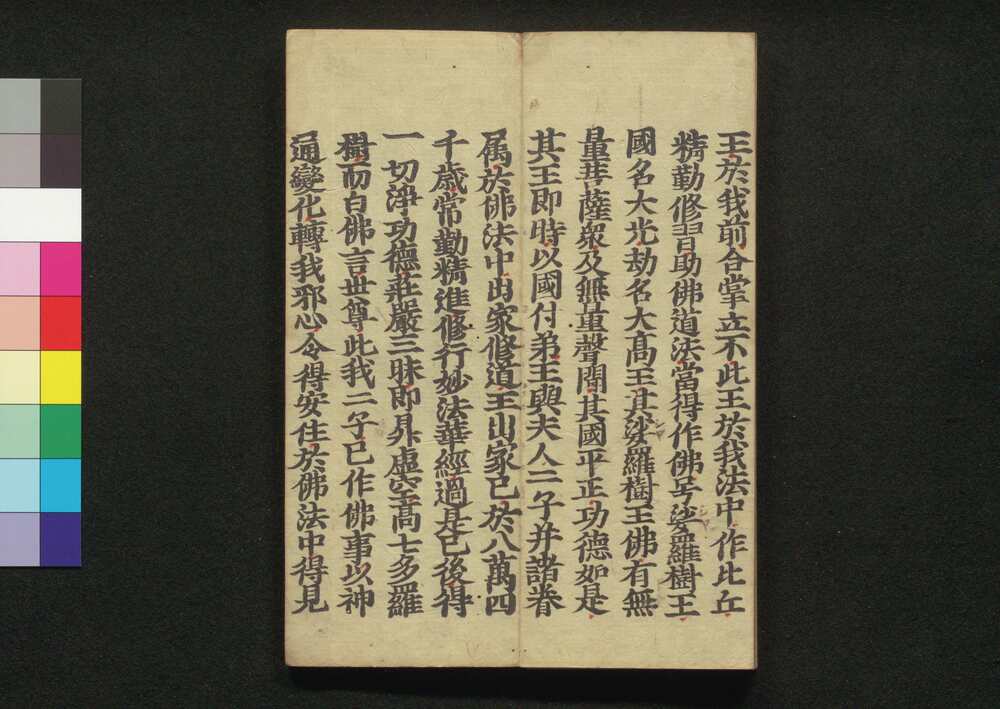 王於我前合掌立不此王於我法中作比丘
精勤修習助佛道法當得作佛号娑羅樹王
國名大光劫名大髙王其娑羅樹王佛有無
量菩薩衆及無量聲聞其國平正功德如是
其王即時以國付弟王與夫人二子并諸眷
属於佛法中出家修道王出家已於八萬四
千歳常勤精進修行妙法華經過是已後得
一切淨功德莊嚴三昧即昇虚空髙七多羅
樹而白佛言世尊此我二子已作佛事以神
通變化轉我邪心令得安住於佛法中得見